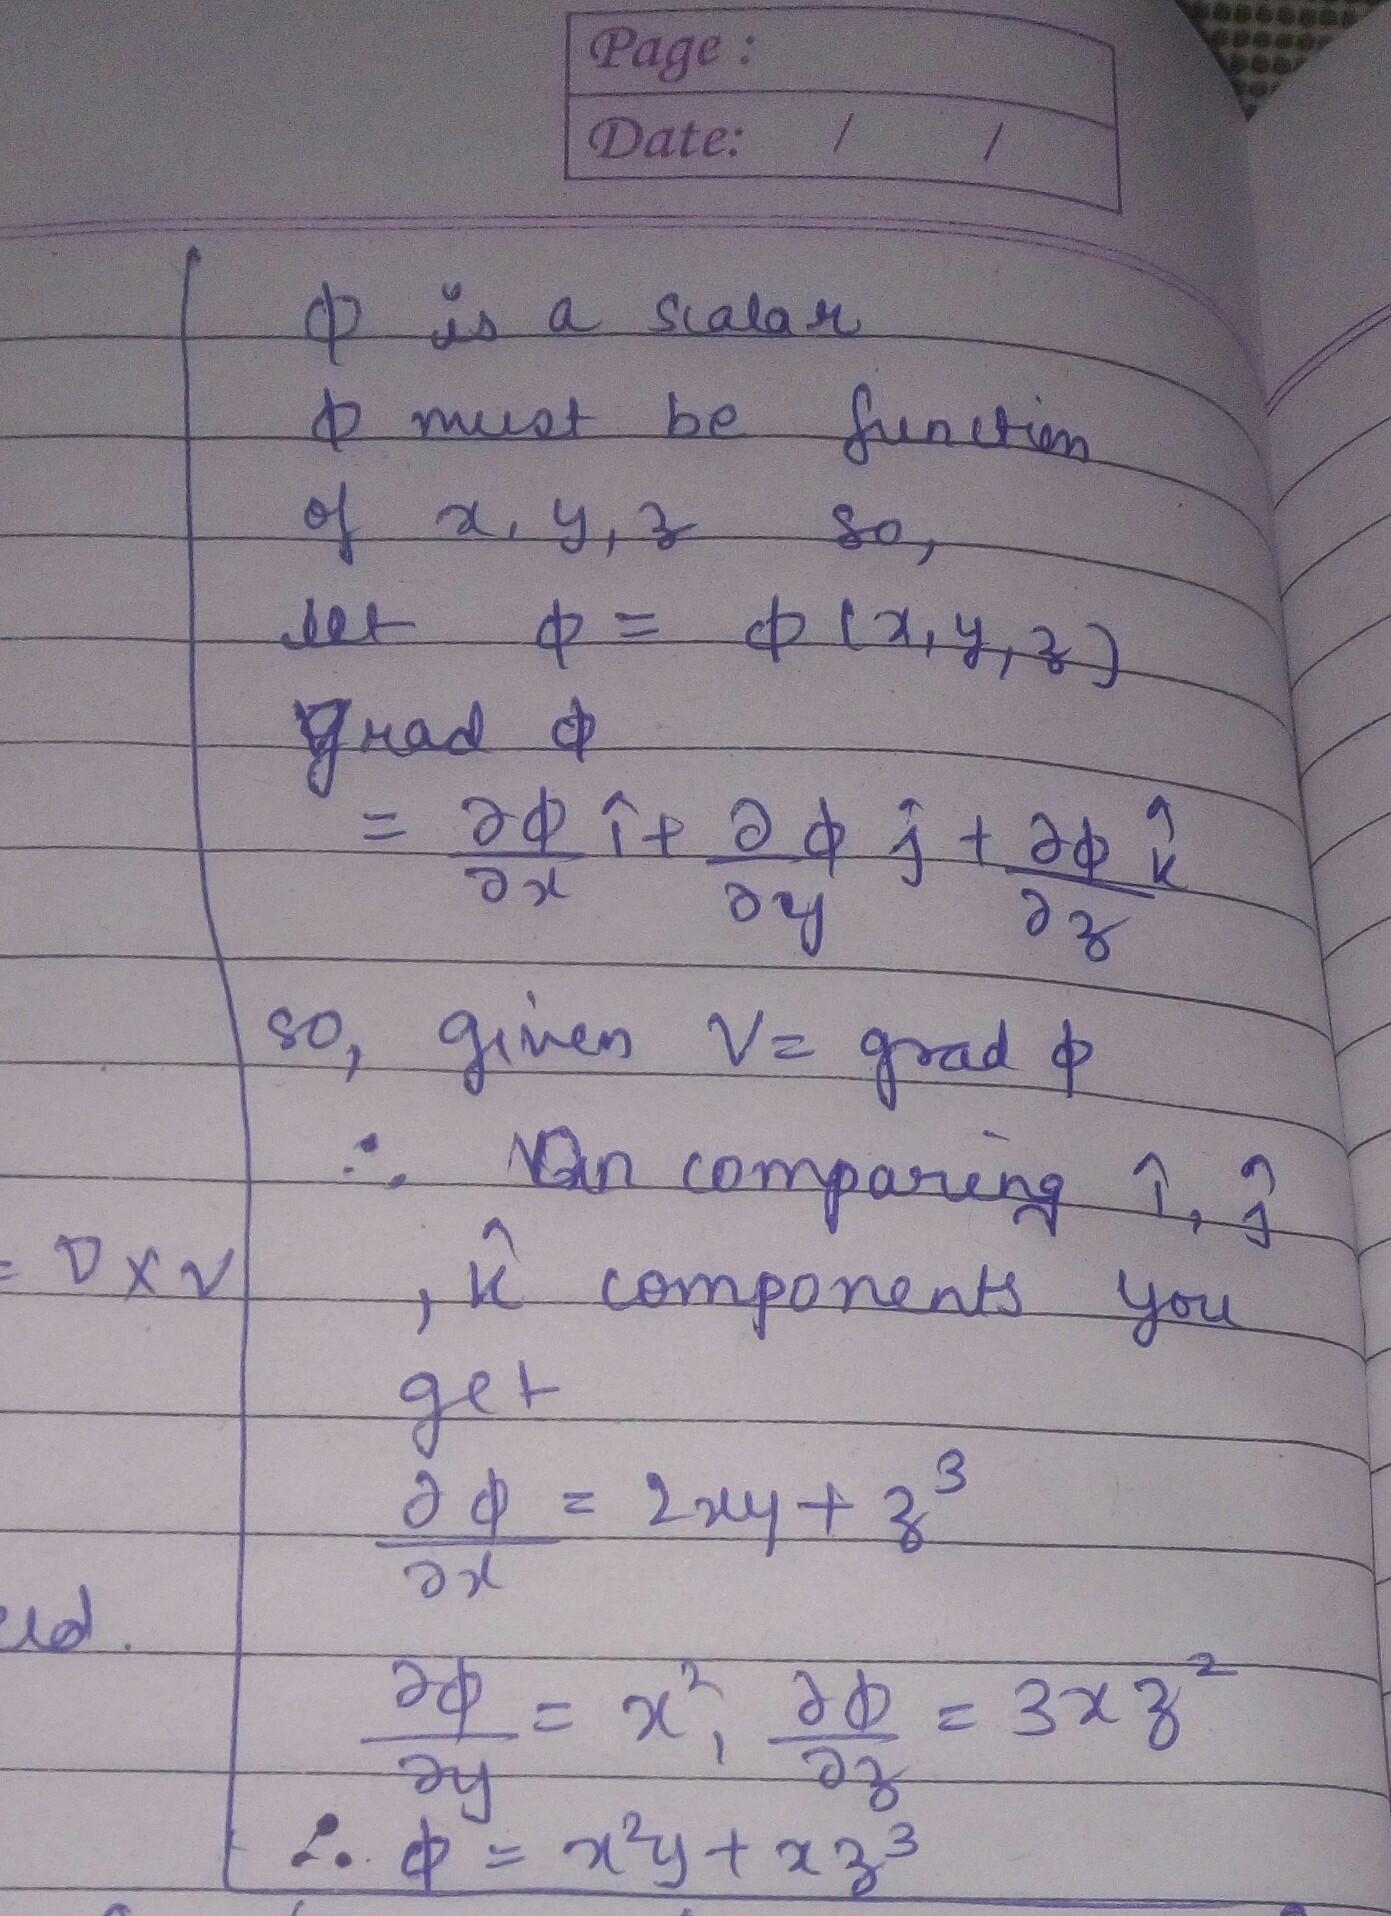 Page :
Date: / /
ϕ is a scalar
ϕ must be function
of x, y, z so,
let ϕ = ϕ (x, y, z)
grad ϕ
= ∂ϕ/∂x î + ∂ϕ/∂y ĵ + ∂ϕ/∂z k̂
so, given V = grad ϕ
∴ On comparing î, ĵ
= ∇ × V
, k̂ components you
get
∂ϕ/∂x = 2xy + z³
∂ϕ/∂y = x², ∂ϕ/∂z = 3xz²
∴ ϕ = x²y + xz³